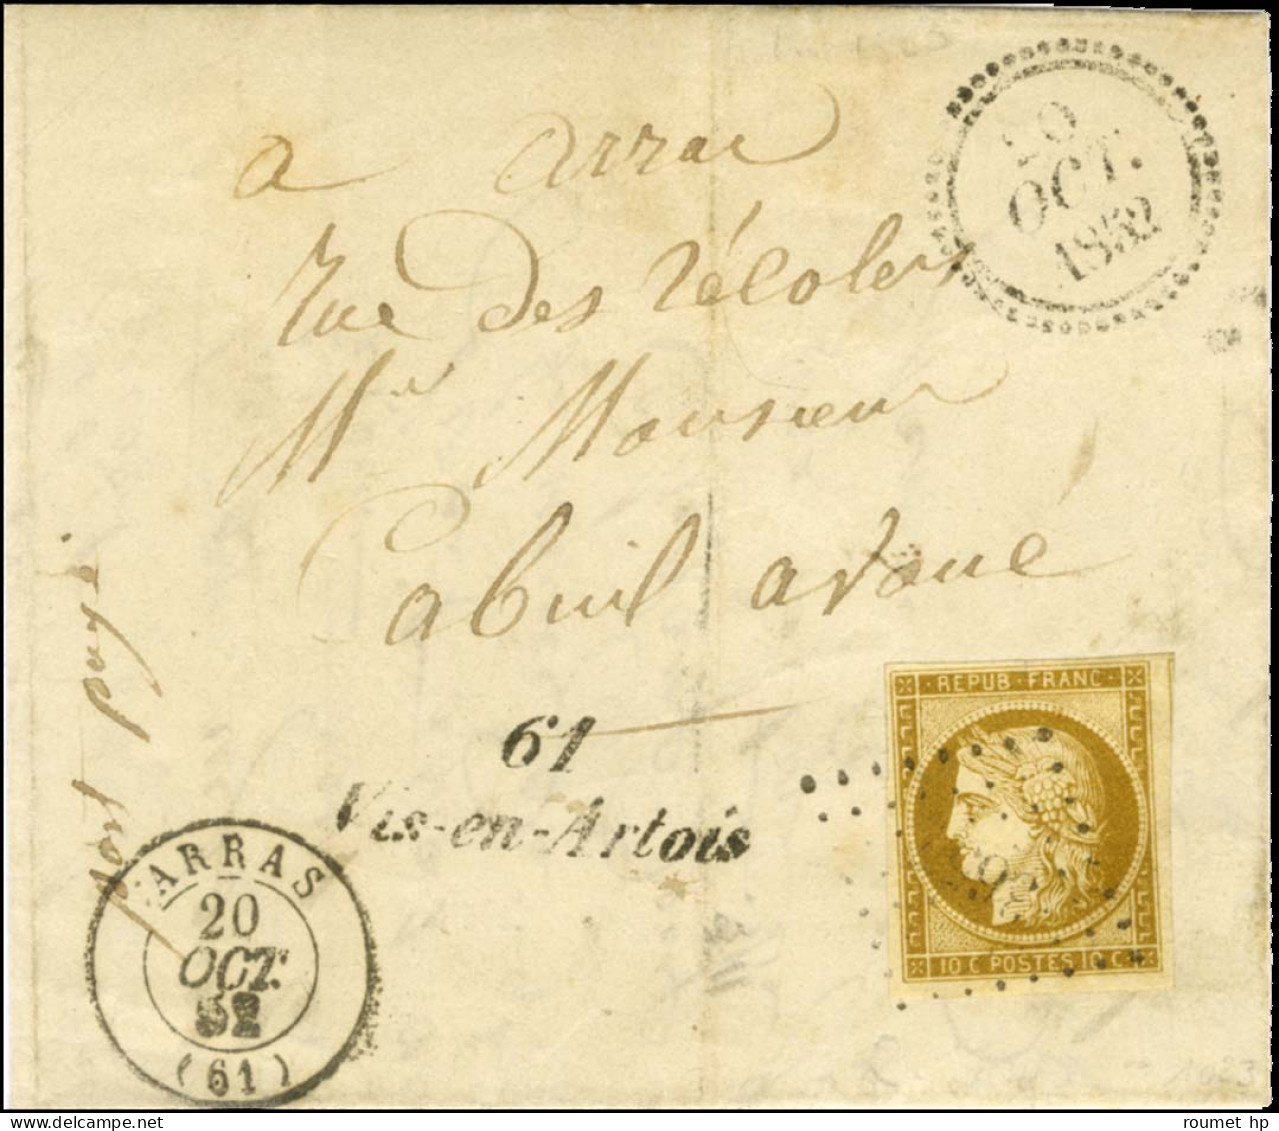 20
OCT.
1852
a arras
rue des récolets
Mr Monsieur
Cabuil avoué
port payé
61
Vis-en-Artois
ARRAS
20
OCT.
52
(61)
REPUB FRANC
10 C POSTES 10 C
roumet hp